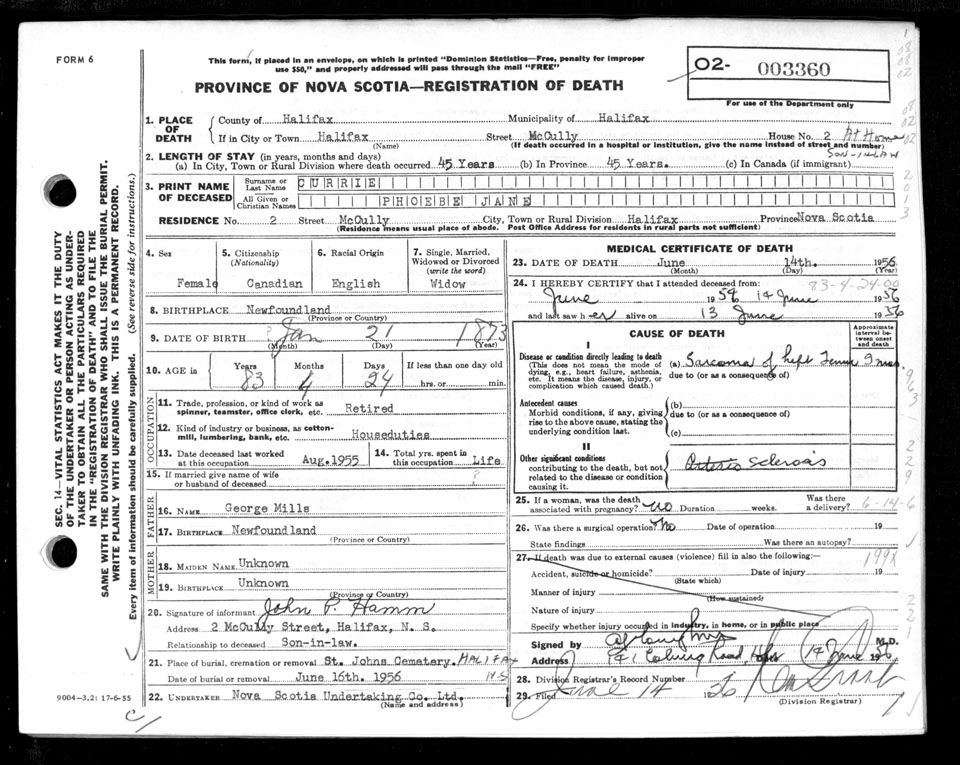 FORM 6
This form, if placed in an envelope, on which is printed "Dominion Statistics—Free, penalty for improper
use $50," and properly addressed will pass through the mail "FREE"
PROVINCE OF NOVA SCOTIA—REGISTRATION OF DEATH
O2- 003360
For use of the Department only
1. PLACE OF DEATH
County of Halifax Municipality of Halifax
If in City or Town Halifax Street McCully House No. 2 At Home
(Name) (If death occurred in a hospital or institution, give the name instead of street and number)
SON-I-LAW
2. LENGTH OF STAY (in years, months and days)
(a) In City, Town or Rural Division where death occurred 45 Years (b) In Province 45 Years. (c) In Canada (if immigrant)
3. PRINT NAME OF DECEASED
Surname or Last Name CURRIE
All Given or Christian Names PHOEBE JANE
RESIDENCE No. 2 Street McCully City, Town or Rural Division Halifax Province Nova Scotia
(Residence means usual place of abode. Post Office Address for residents in rural parts not sufficient)
4. Sex
Female
5. Citizenship (Nationality)
Canadian
6. Racial Origin
English
7. Single, Married, Widowed or Divorced (write the word)
Widow
8. BIRTHPLACE Newfoundland
(Province or Country)
9. DATE OF BIRTH Jan 21 1873
(Month) (Day) (Year)
10. AGE in
Years Months Days If less than one day old
83 4 24 hrs. or min.
OCCUPATION
11. Trade, profession, or kind of work as
spinner, teamster, office clerk, etc. Retired
12. Kind of industry or business, as cotton-
mill, lumbering, bank, etc. Houseduties
13. Date deceased last worked at this occupation Aug.1955
14. Total yrs. spent in this occupation Life
15. If married give name of wife
or husband of deceased ?
FATHER
16. NAME George Mills
17. BIRTHPLACE Newfoundland
(Province or Country)
MOTHER
18. MAIDEN NAME Unknown
19. BIRTHPLACE Unknown
(Province or Country)
20. Signature of informant John P. Hamm
Address 2 McCully Street, Halifax, N. S.
Relationship to deceased Son-in-law.
21. Place of burial, cremation or removal St. Johns Cematery. HALIFAX
Date of burial or removal June 16th. 1956 NS
22. UNDERTAKER Nova Scotia Undertaking Co. Ltd.
(Name and address)
MEDICAL CERTIFICATE OF DEATH
23. DATE OF DEATH June 14th. 1956
(Month) (Day) (Year)
83-4-24-00
24. I HEREBY CERTIFY that I attended deceased from:
June 1954 14 June 1956
and last saw her alive on 13 June 1956
CAUSE OF DEATH
Approximate interval between onset and death
I
Disease or condition directly leading to death
(This does not mean the mode of
dying, e.g., heart failure, asthenia,
etc. It means the disease, injury, or
complication which caused death.)
(a) Sarcoma of left Femur 9 mos.
due to (or as a consequence of)
Antecedent causes
Morbid conditions, if any, giving
rise to the above cause, stating the
underlying condition last.
(b)
due to (or as a consequence of)
(c)
II
Other significant conditions
contributing to the death, but not
related to the disease or condition
causing it.
Arterio sclerosis
25. If a woman, was the death
associated with pregnancy? No Duration weeks. Was there a delivery?
6-14-6
26. Was there a surgical operation? No Date of operation 19
State findings Was there an autopsy?
27. If death was due to external causes (violence) fill in also the following:—
Accident, suicide or homicide? Date of injury 19
(State which)
Manner of injury
(How sustained)
Nature of injury
Specify whether injury occurred in industry, in home, or in public place
Signed by M.D.
Address Road 14 June 1956
28. Division Registrar's Record Number
29. Filed June 14 1956
(Division Registrar)
SEC. 14—VITAL STATISTICS ACT MAKES IT THE DUTY
OF THE UNDERTAKER OR PERSON ACTING AS UNDER-
TAKER TO OBTAIN ALL THE PARTICULARS REQUIRED
IN THE "REGISTRATION OF DEATH" AND TO FILE THE
SAME WITH THE DIVISION REGISTRAR WHO SHALL ISSUE THE BURIAL PERMIT.
WRITE PLAINLY WITH UNFADING INK. THIS IS A PERMANENT RECORD.
Every item of information should be carefully supplied. (See reverse side for instructions.)
9004-3.2: 17-6-55